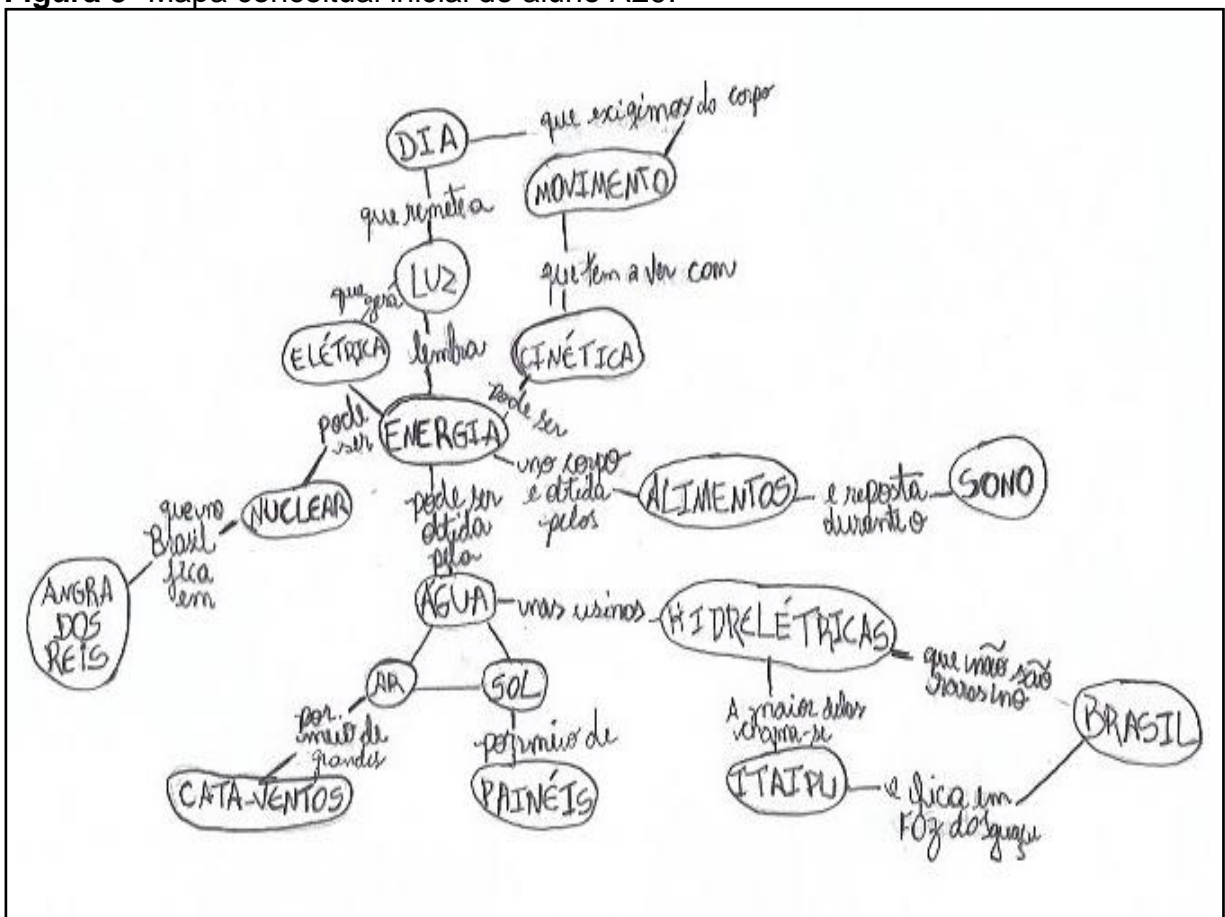 DIA
que exigimos do corpo
MOVIMENTO
que remete a
LUZ
que tem a ver com
que
gera
ELÉTRICA
lembra
CINÉTICA
pode ser
ENERGIA
pode
ser
no corpo
é obtida
pelos
ALIMENTOS
é reposta
durante o
SONO
NUCLEAR
que no
Brasil
fica
em
ANGRA
DOS
REIS
pode ser
obtida
pela
ÁGUA
nas usinas
HIDRELÉTRICAS
que não são
raras no
BRASIL
AR
SOL
por
meio de
grandes
CATA-VENTOS
por meio de
PAINÉIS
A maior delas
chama-se
ITAIPU
e fica em
FOZ do Iguaçu